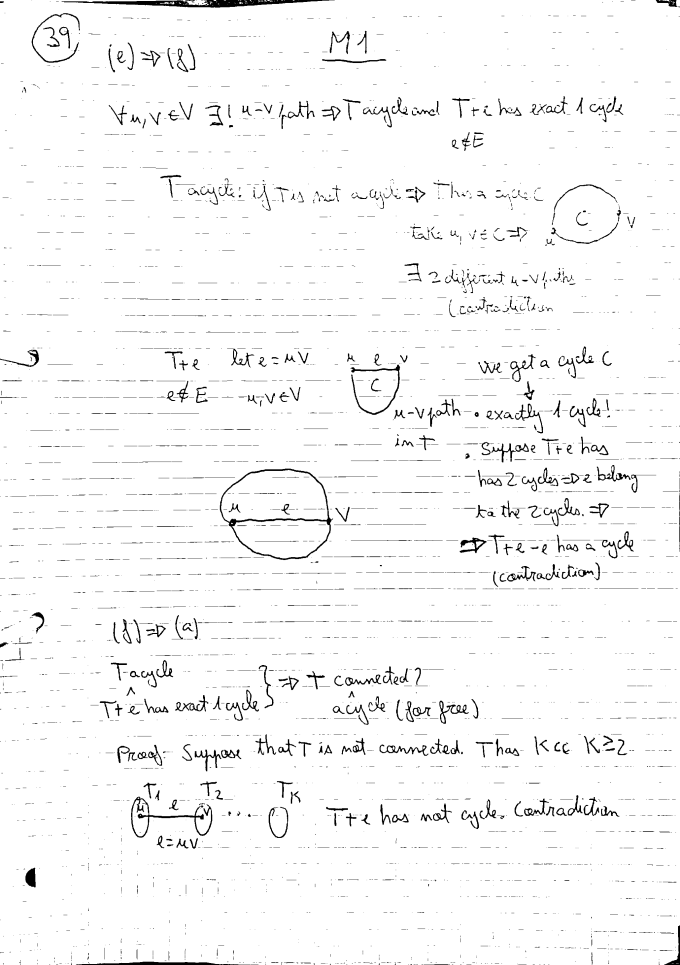 39
M1
(e) ⇒ (f)
∀u, v ∈ V ∃! u-v path ⇒ T acycle and T+e has exact 1 cycle
e∉E
T acycle: if T is not acycle ⇒ T has a cycle C
take u, v ∈ C ⇒
C
u v
∃ 2 different u-v paths
(contradiction
T+e let e = uv
e∉E u, v ∈ V
u e v
C
u-v path
in T
We get a cycle C
↓
• exactly 1 cycle!
• Suppose T+e has
has 2 cycles ⇒ e belong
to the 2 cycles. ⇒
⇒ T+e-e has a cycle
(contradiction)
u e v
?
(f) ⇒ (a)
T acycle
^
T+e has exact 1 cycle } ⇒ T connected?
^
acycle (for free)
Proof: Suppose that T is not connected. T has K cc K≥2
T1 T2 TK
u e v ...
e = uv
T+e has not cycle. Contradiction